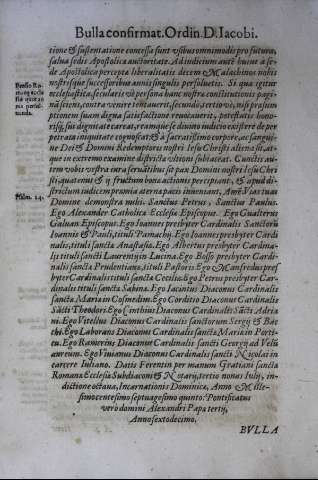 Bulla confirmat. Ordin. D. Iacobi.
tione & sustentatione concessa sunt vsibus omnimodis pro futura,
salua sedis Apostolicæ auctoritate. Ad indicium autē huius à se-
de Apostolica percepta liberalitatis decem Malachinos nobis
nostrisque successoribus annis singulis persoluetis. Si qua igitur
ecclesiastica, secularis vè persona hanc nostræ constitutionis pagi-
nã sciens, contra venire temauerit, secundo, tertio vè, nisi præsum
ptionem suam digna satisfactione reuocauerit, potestatis hono-
risq́; sui dignitate careat, reamque se diuino iudicio existere de per
petrata iniquitate cognoscat & à sacratissimo corpore, ac sangui-
ne Dei & Domini Redemptoris nostri Iesu Christi aliena sit, at-
que in extremo examine districtæ vltioni subiaceat. Cunctis au-
tem vobis vestra iura seruãtibus sit pax Domini nostri Iesu Chri
sti, quatenus & hi fructum bonæ actionis percipiant, & apud di-
strictum iudicem præmia æternæ pacis inueniant, Amē Vias tuas
Domine demonstra mihi. Sanctus Petrus, Sanctus Paulus.
Ego Alexander Catholicæ Ecclesiæ Episcopus. Ego Gualterus
Ioannis & Pauli, tituli Pamachij. Ego Ioannes presbyter Cardi
nalis, tituli sanctæ Anastasiæ. Ego Albertus presbyter Cardina-
lis tituli sancti Laurentij in Lucina. Ego Boso presbyter Cardi-
nalis sanctæ Prudentianæ, tituli Pastoris Ego Manfredus pres
byter Cardinalis tituli sanctæ Ceciliæ. Ego Petrus presbyter Car-
dinalis tituli sanctæ Sabinæ. Ego Iacintus Diaconus Cardinalis
sanctæ Mariæ in Cosmedim. Ego Corditio Diaconus Cardinalis
Sãcti Theodori. Ego Cinthius Diaconus Cardinalis Sãcti Adria
ni. Ego Vitellus Diaconus Cardinalis sanctorum Sergij & Bac
chi. Ego Laborans Diaconus Cardinalis sanctæ Mariæ in Porti-
cu. Ego Ramerius Diaconus Cardinalis sancti Georgij ad Velũ
aureum. Ego Vinianus Diaconus Cardinalis sancti Nicolai in
carcere Iuliano. Datis Ferentin per manum Gratiani sanctæ
Romanæ Ecclesiæ Subdiaconi & Notarij, tertio nonas Iulij, in-
dictione octaua, Incarnationis Dominicæ, Anno Mille-
simo centesimo septuagesimo quinto. Pontificatus
vero domini Alexandri Papæ tertij,
Anno sextodecimo.
BVLLA
Psalm. 24.